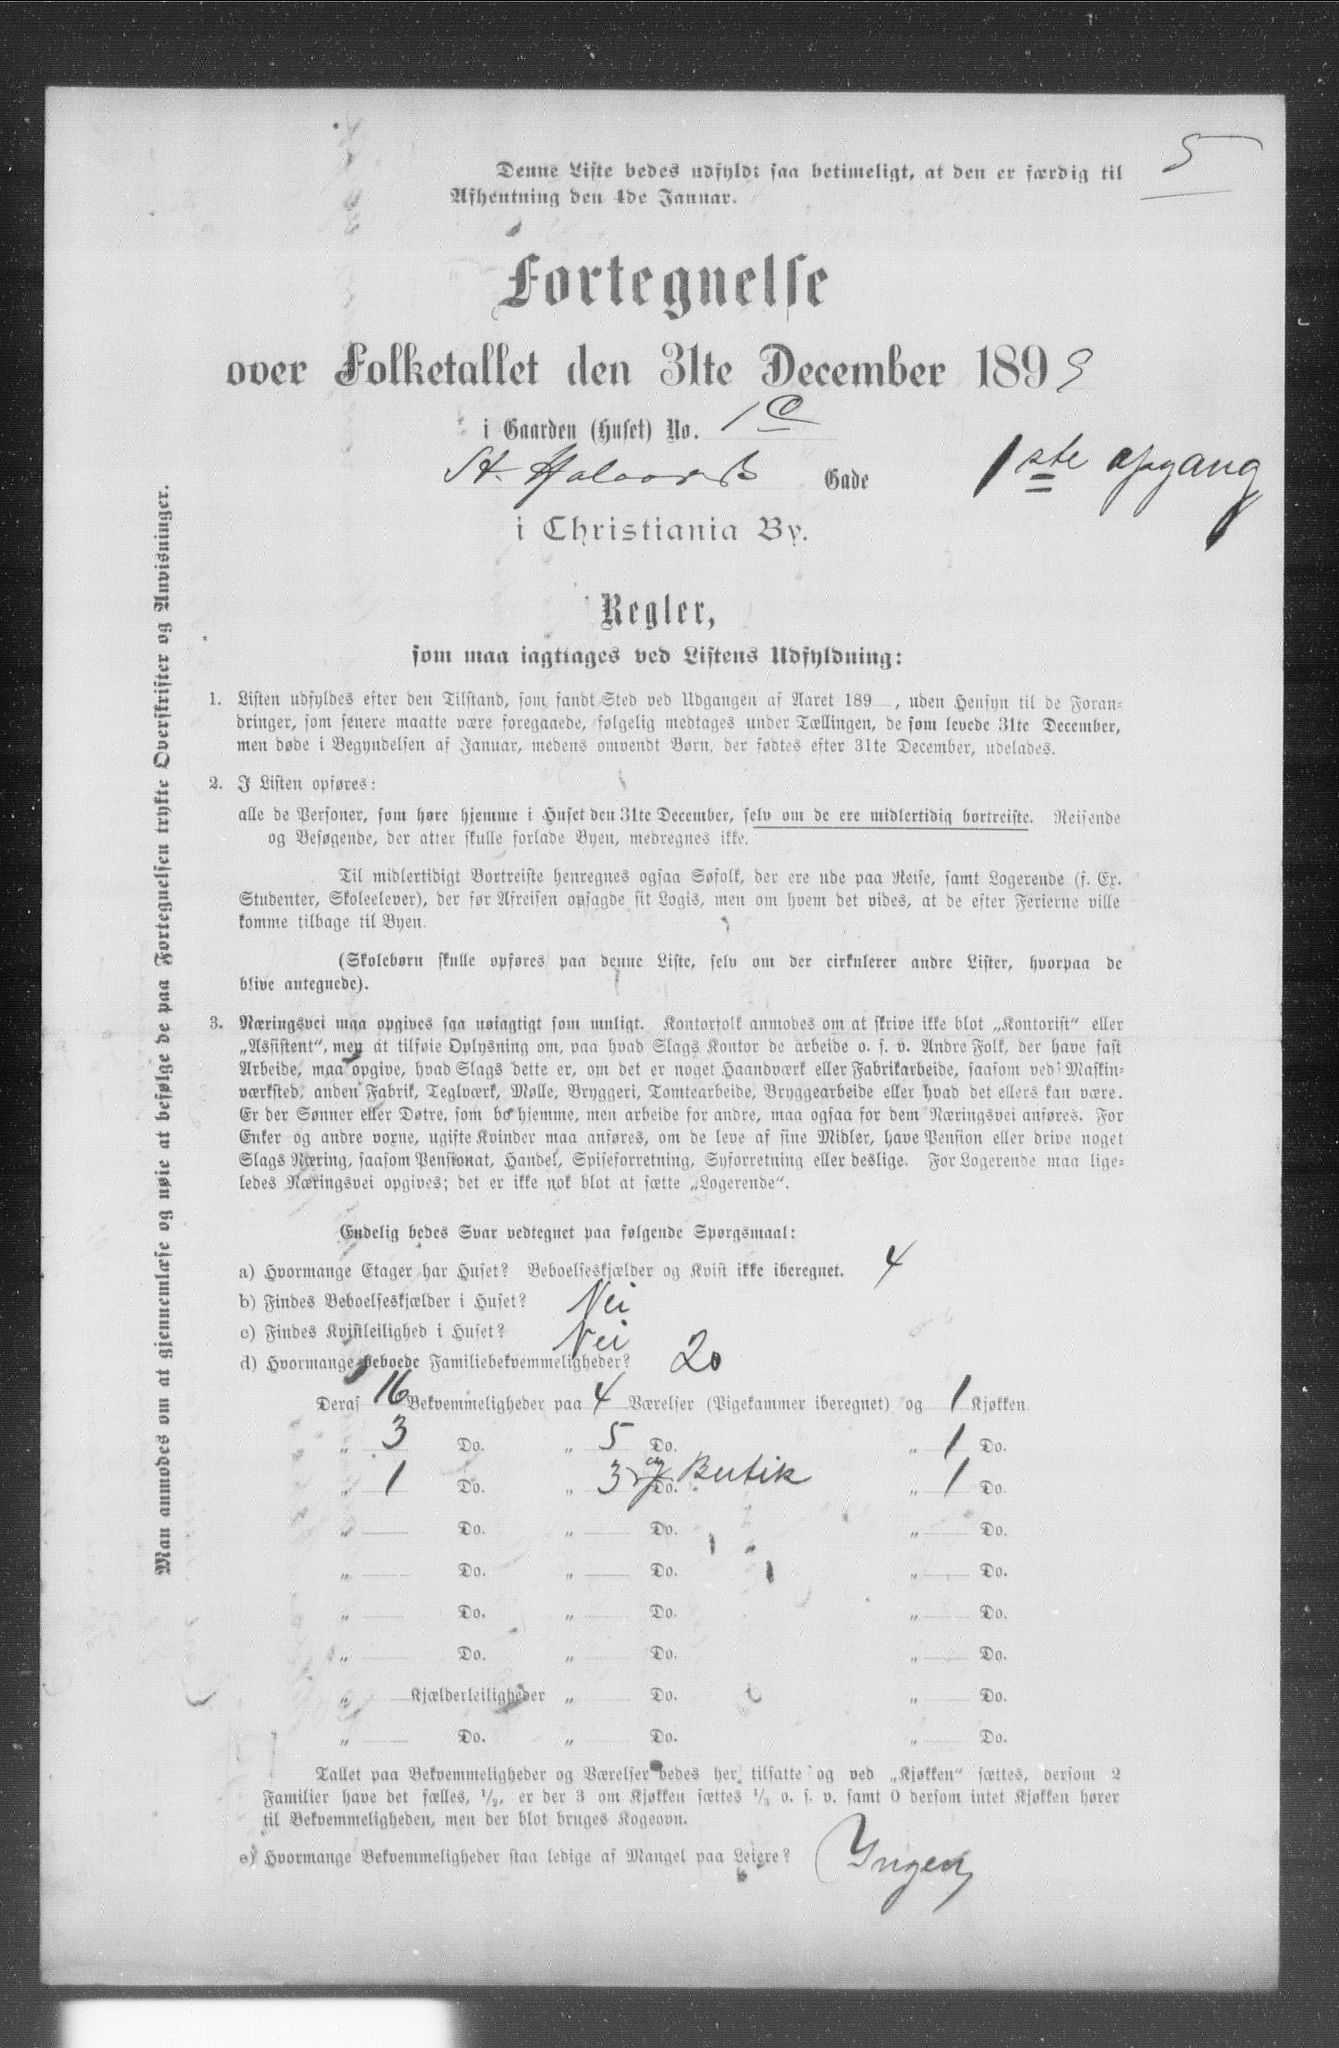 5
Denne Liste bedes udfyldt saa betimeligt, at den er færdig til
Afhentning den 4de Januar.
Fortegnelse
over Folketallet den 31te December 1899
i Gaarden (Huset) No. 1 C
St. Halvards Gade
1ste opgang
i Christiania By.
Regler,
som maa iagttages ved Listens Udfyldning:
1. Listen udfyldes efter den Tilstand, som fandt Sted ved Udgangen af Aaret 189 , uden Hensyn til de Foran-
dringer, som senere maatte være foregaaede, følgelig medtages under Tællingen, de som levede 31te December,
men døde i Begyndelsen af Januar, medens omvendt Børn, der fødtes efter 31te December, udelades.
2. I Listen opføres:
alle de Personer, som høre hjemme i Huset den 31te December, selv om de ere midlertidig bortreiste. Reisende
og Besøgende, der atter skulle forlade Byen, medregnes ikke.
Til midlertidigt Bortreiste henregnes ogsaa Søfolk, der ere ude paa Reise, samt Logerende (f. Ex.
Studenter, Skoleelever), der før Afreisen opsagde sit Logis, men om hvem det vides, at de efter Ferierne ville
komme tilbage til Byen.
(Skolebørn skulle opføres paa denne Liste, selv om der cirkulerer andre Lister, hvorpaa de
blive antegnede).
3. Næringsvei maa opgives saa nøiagtigt som muligt. Kontorfolk anmodes om at skrive ikke blot „Kontorist“ eller
„Assistent“, men at tilføie Oplysning om, paa hvad Slags Kontor de arbeide o. s. v. Andre Folk, der have fast
Arbeide, maa opgive, hvad Slags dette er, om det er noget Haandværk eller Fabrikarbeide, saasom ved Maskin-
værksted, anden Fabrik, Teglværk, Mølle, Bryggeri, Tomtearbeide, Bryggearbeide eller hvad det ellers kan være.
Er der Sønner eller Døtre, som bo hjemme, men arbeide for andre, maa ogsaa for dem Næringsvei anføres. For
Enker og andre vorne, ugifte Kvinder maa anføres, om de leve af sine Midler, have Pension eller drive noget
Slags Næring, saasom Pensionat, Handel, Spiseforretning, Syforretning eller deslige. For Logerende maa lige-
ledes Næringsvei opgives; det er ikke nok blot at sætte „Logerende“.
Endelig bedes Svar vedtegnet paa følgende Spørgsmaal:
a) Hvormange Etager har Huset? Beboelseskjælder og Kvist ikke iberegnet. 4
b) Findes Beboelseskjælder i Huset? Nei
c) Findes Kvistleilighed i Huset? Nei
d) Hvormange beboede Familiebekvemmeligheder? 20
Deraf 16 Bekvemmeligheder paa 4 Værelser (Pigekammer iberegnet) og 1 Kjøkken.
„ 3 Do. „ 5 Do. „ 1 Do.
„ 1 Do. „ 3 og Do. Butik „ 1 Do.
„ Do. „ Do. „ Do.
„ Do. „ Do. „ Do.
„ Do. „ Do. „ Do.
„ Do. „ Do. „ Do.
„ Kjælderleiligheder „ Do. „ Do.
„ Do. „ Do. „ Do.
Tallet paa Bekvemmeligheder og Værelser bedes her tilsatte og ved „Kjøkken“ sættes, dersom 2
Familier have det fælles, 1/2, er der 3 om Kjøkken sættes 1/3 o. s. v. samt 0 dersom intet Kjøkken hører
til Bekvemmeligheden, men der blot bruges Kogeovn.
e) Hvormange Bekvemmeligheder staa ledige af Mangel paa Leiere? Yngen
Man anmodes om at gjennemlæse og nøie at besølge de paa Fortegnelsen trykte Overskrifter og Anvisninger.